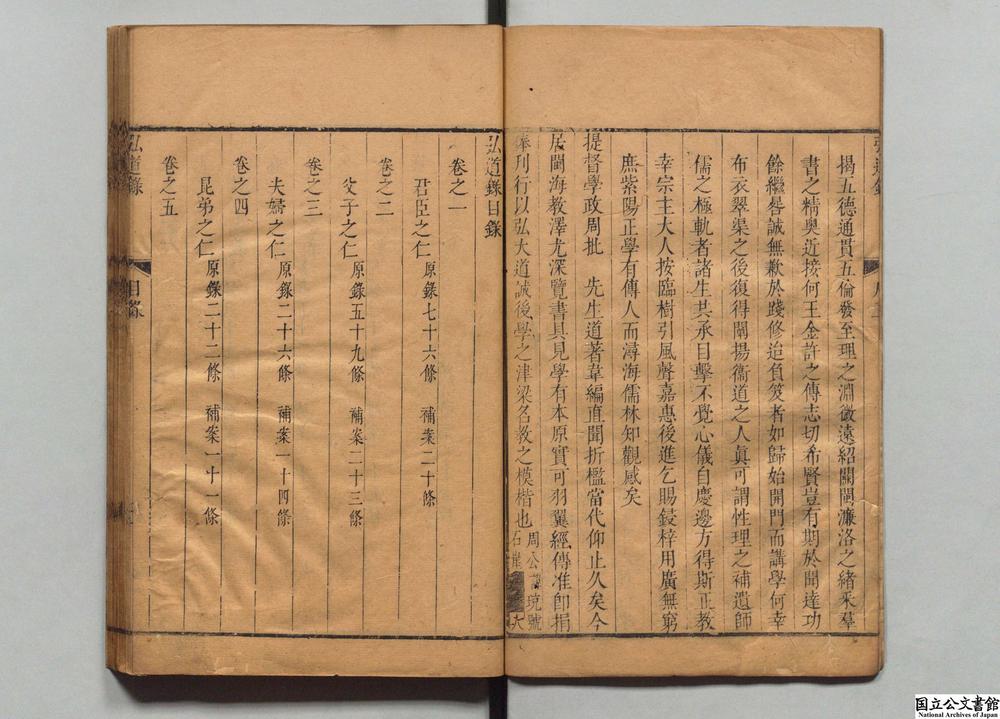 揭五德通貫五倫發至理之淵微遠紹關閩濂洛之緒采羣
書之精奧近接何王金許之傳志切希賢豈有期於聞達功
餘繼晷誠無歉於踐修迨負笈者如歸始開門而講學何幸
布衣翠渠之後復得闡揚衞道之人眞可謂性理之補遺師
儒之極軌者諸生其承目擊不覺心儀自慶邊方得斯正教
幸宗主大人按臨樹引風聲嘉惠後進乞賜鋟梓用廣無窮
庶紫陽正學有傳人而潯海儒林知觀感矣
提督學政周批　先生道著韋編直聞折檻當代仰止久矣今
居閩海教澤尤深覽書具見學有本原實可羽翼經傳准卽捐
俸刊行以弘大道誠後學之津梁名教之模楷也
周公
號
石崖
大
弘道錄目錄
卷之一
君臣之仁　原錄七十六條　補案二十條
卷之二
父子之仁　原錄五十九條　補案二十三條
卷之三
夫婦之仁　原錄二十六條　補案一十四條
卷之四
昆弟之仁　原錄二十二條　補案一十一條
卷之五
弘道錄　目錄
国立公文書館
National Archives of Japan